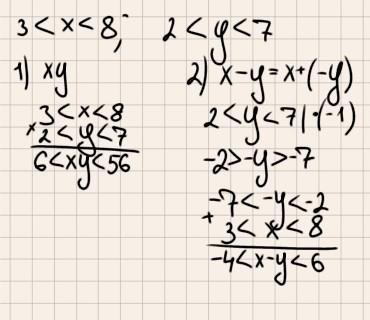 3 < x < 8; 2 < y < 7
1) xy
3 < x < 8
× 2 < y < 7
6 < xy < 56
2) x - y = x + (-y)
2 < y < 7 | · (-1)
-2 > -y > -7
-7 < -y < -2
+ 3 < x < 8
-4 < x - y < 6